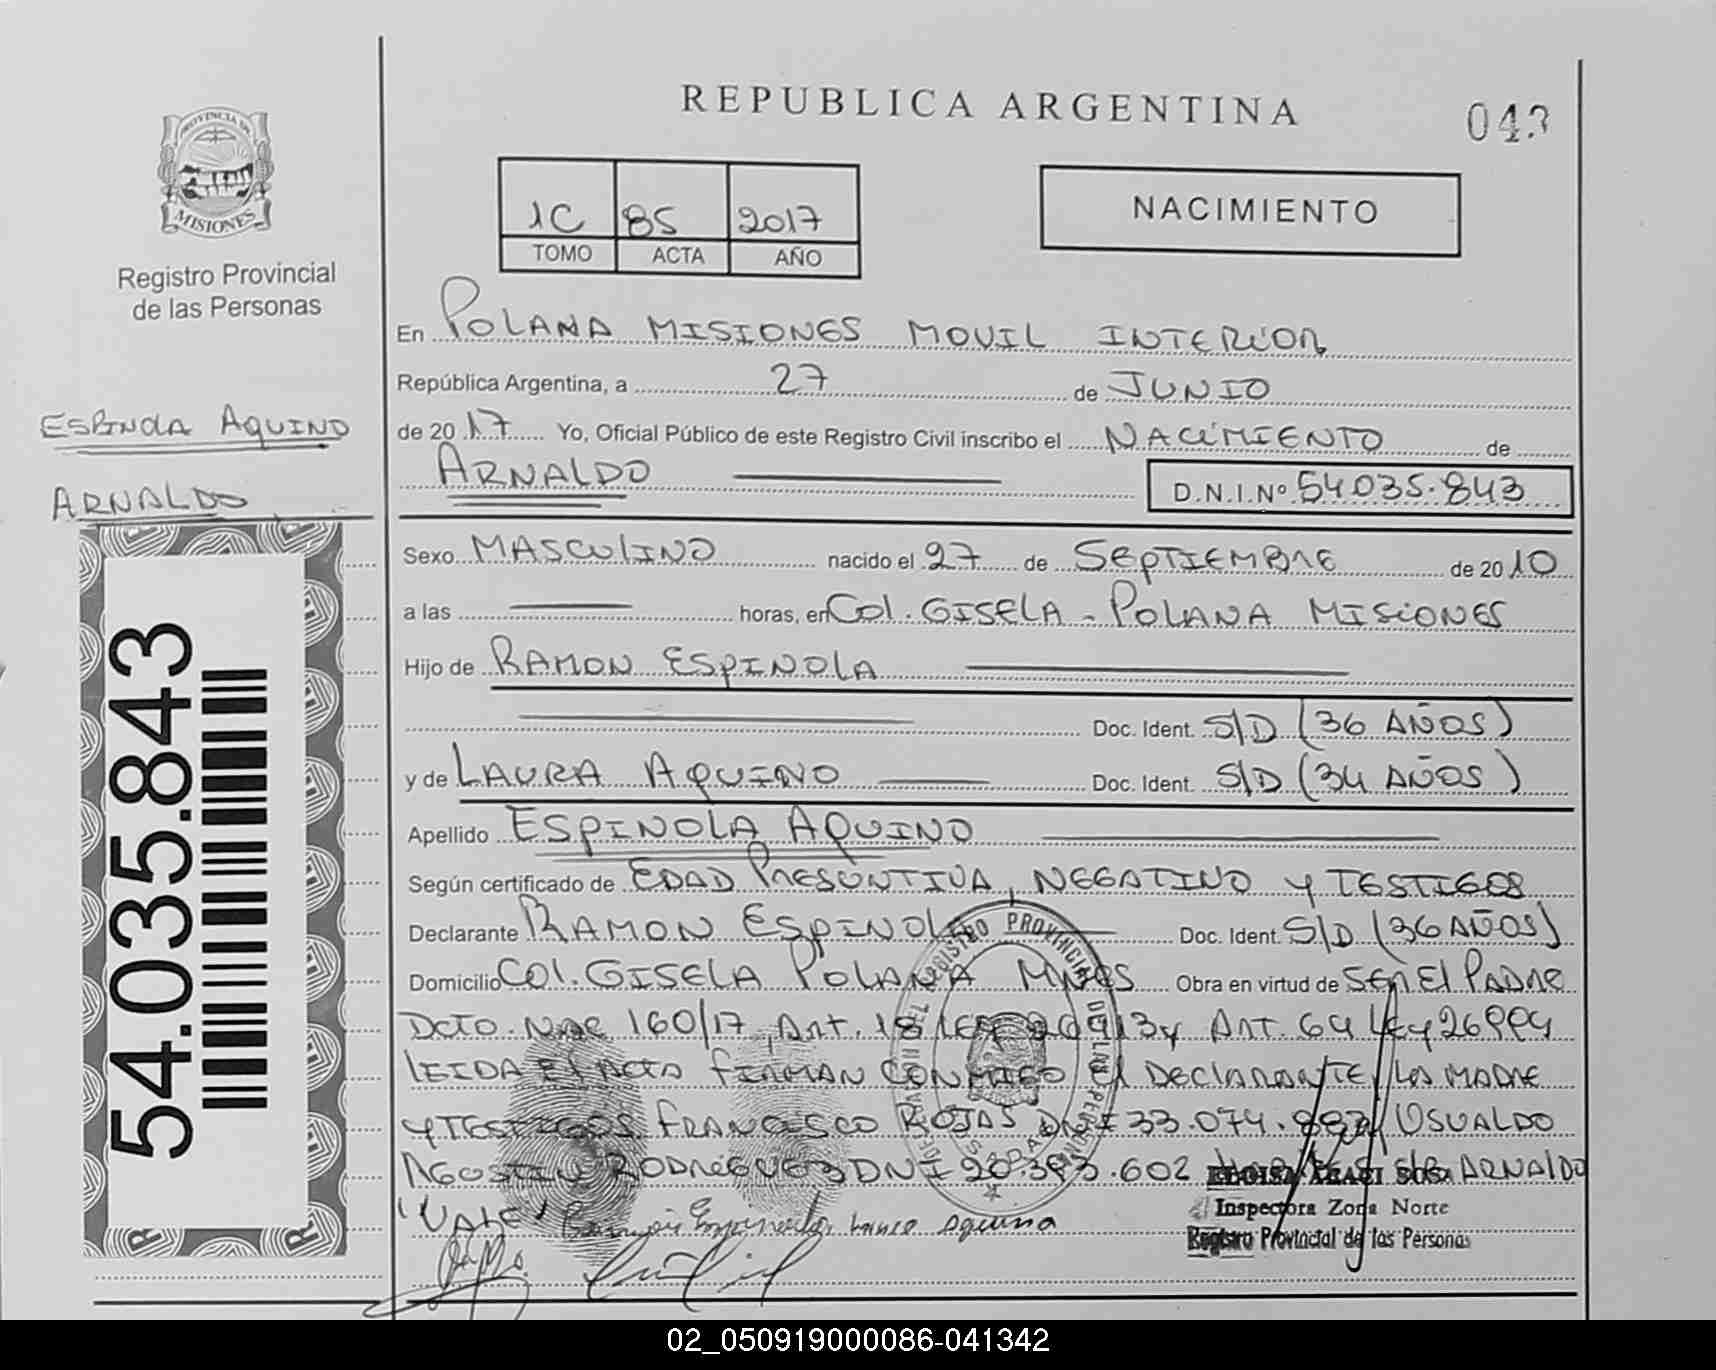 REPUBLICA ARGENTINA
04
PROVINCIA DE
MISIONES
Registro Provincial
de las Personas
1C 85 2017
TOMO ACTA AÑO
NACIMIENTO
En POLANA MISIONES MOVIL INTERIOR
República Argentina, a 27 de JUNIO
de 2017 Yo, Oficial Público de este Registro Civil inscribo el NACIMIENTO de
ARNALDO
D.N.I.Nº 54035.843
ESPINOLA AQUINO
ARNALDO
54.035.843
Sexo MASCULINO nacido el 27 de SEPTIEMBRE de 2010
a las horas, en Col. GISELA - POLANA MISIONES
Hijo de RAMON ESPINOLA
Doc. Ident. S/D (36 AÑOS)
y de LAURA AQUINO Doc. Ident. S/D (34 AÑOS)
Apellido ESPINOLA AQUINO
Según certificado de EDAD PRESUNTIVA, NEGATIVO Y TESTIGOS
Declarante RAMON ESPINOLA Doc. Ident. S/D (36 AÑOS)
Domicilio COl. GISELA POLANA MNES Obra en virtud de SER El PADRE
DCTO. NAC 160/17 Art. 18 LEY 26413 y ART. 64 Ley 26994
LEIDA El ACTA FIRMAN CONMIGO El DECLARANTE, LA MADRE
Y TESTIGOS FRANCISCO ROJAS DNI 33.074. USUALDO
AGOSTIN RODRIGUEZ DNI 20.393.602 S/R ARNALDO
"VALE"
REGISTRO PROVINCIAL DE LAS PERSONAS
SUSI
Inspectora Zona Norte
Registro Provincial de las Personas
02_050919000086-041342